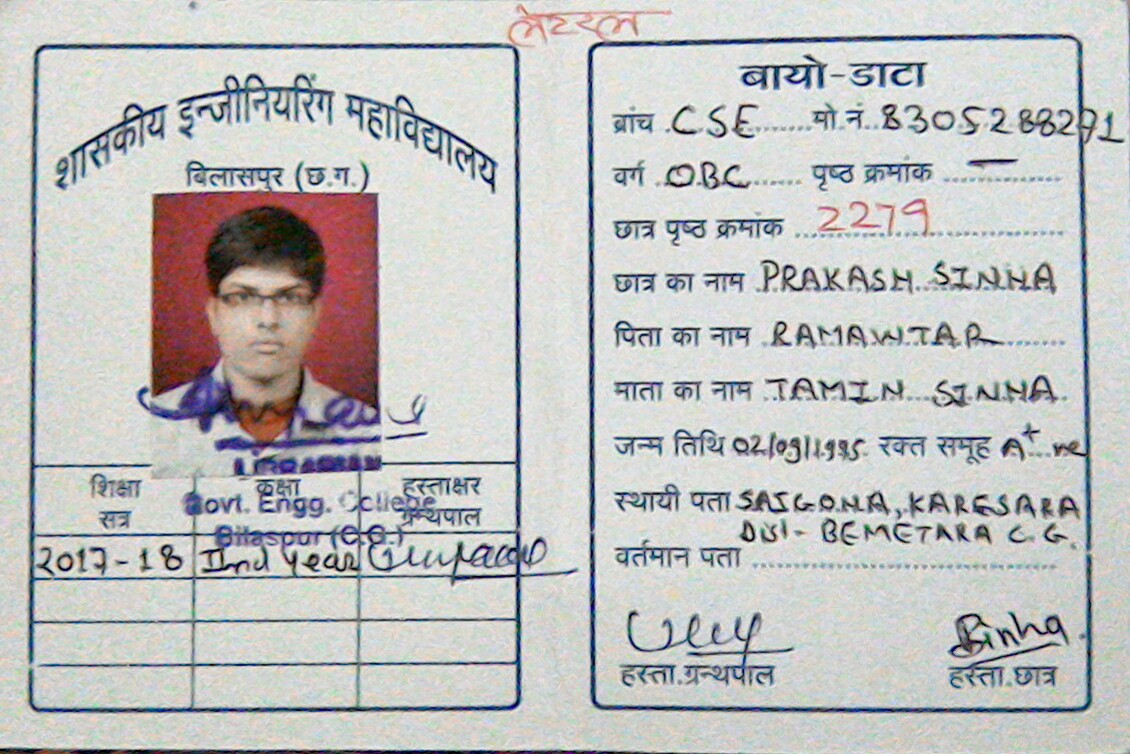 लेटरल
शासकीय इन्जीनियरिंग महाविद्यालय
बिलासपुर (छ.ग.)
LIBRARIAN
Govt. Engg. College
Bilaspur (C.G.)
शिक्षा सत्र कक्षा हस्ताक्षर ग्रन्थपाल
2017-18 IInd year
बायो-डाटा
ब्रांच CSE मो.नं. 8305288271
वर्ग OBC पृष्ठ क्रमांक —
छात्र पृष्ठ क्रमांक 2279
छात्र का नाम PRAKASH SINHA
पिता का नाम RAMAWTAR
माता का नाम JAMIN SINHA
जन्म तिथि 02/09/1995 रक्त समूह A+ ve
स्थायी पता SAIGONA, KARESARA
Dist- BEMETARA C.G.
वर्तमान पता
Sinha
हस्ता.ग्रन्थपाल हस्ता.छात्र